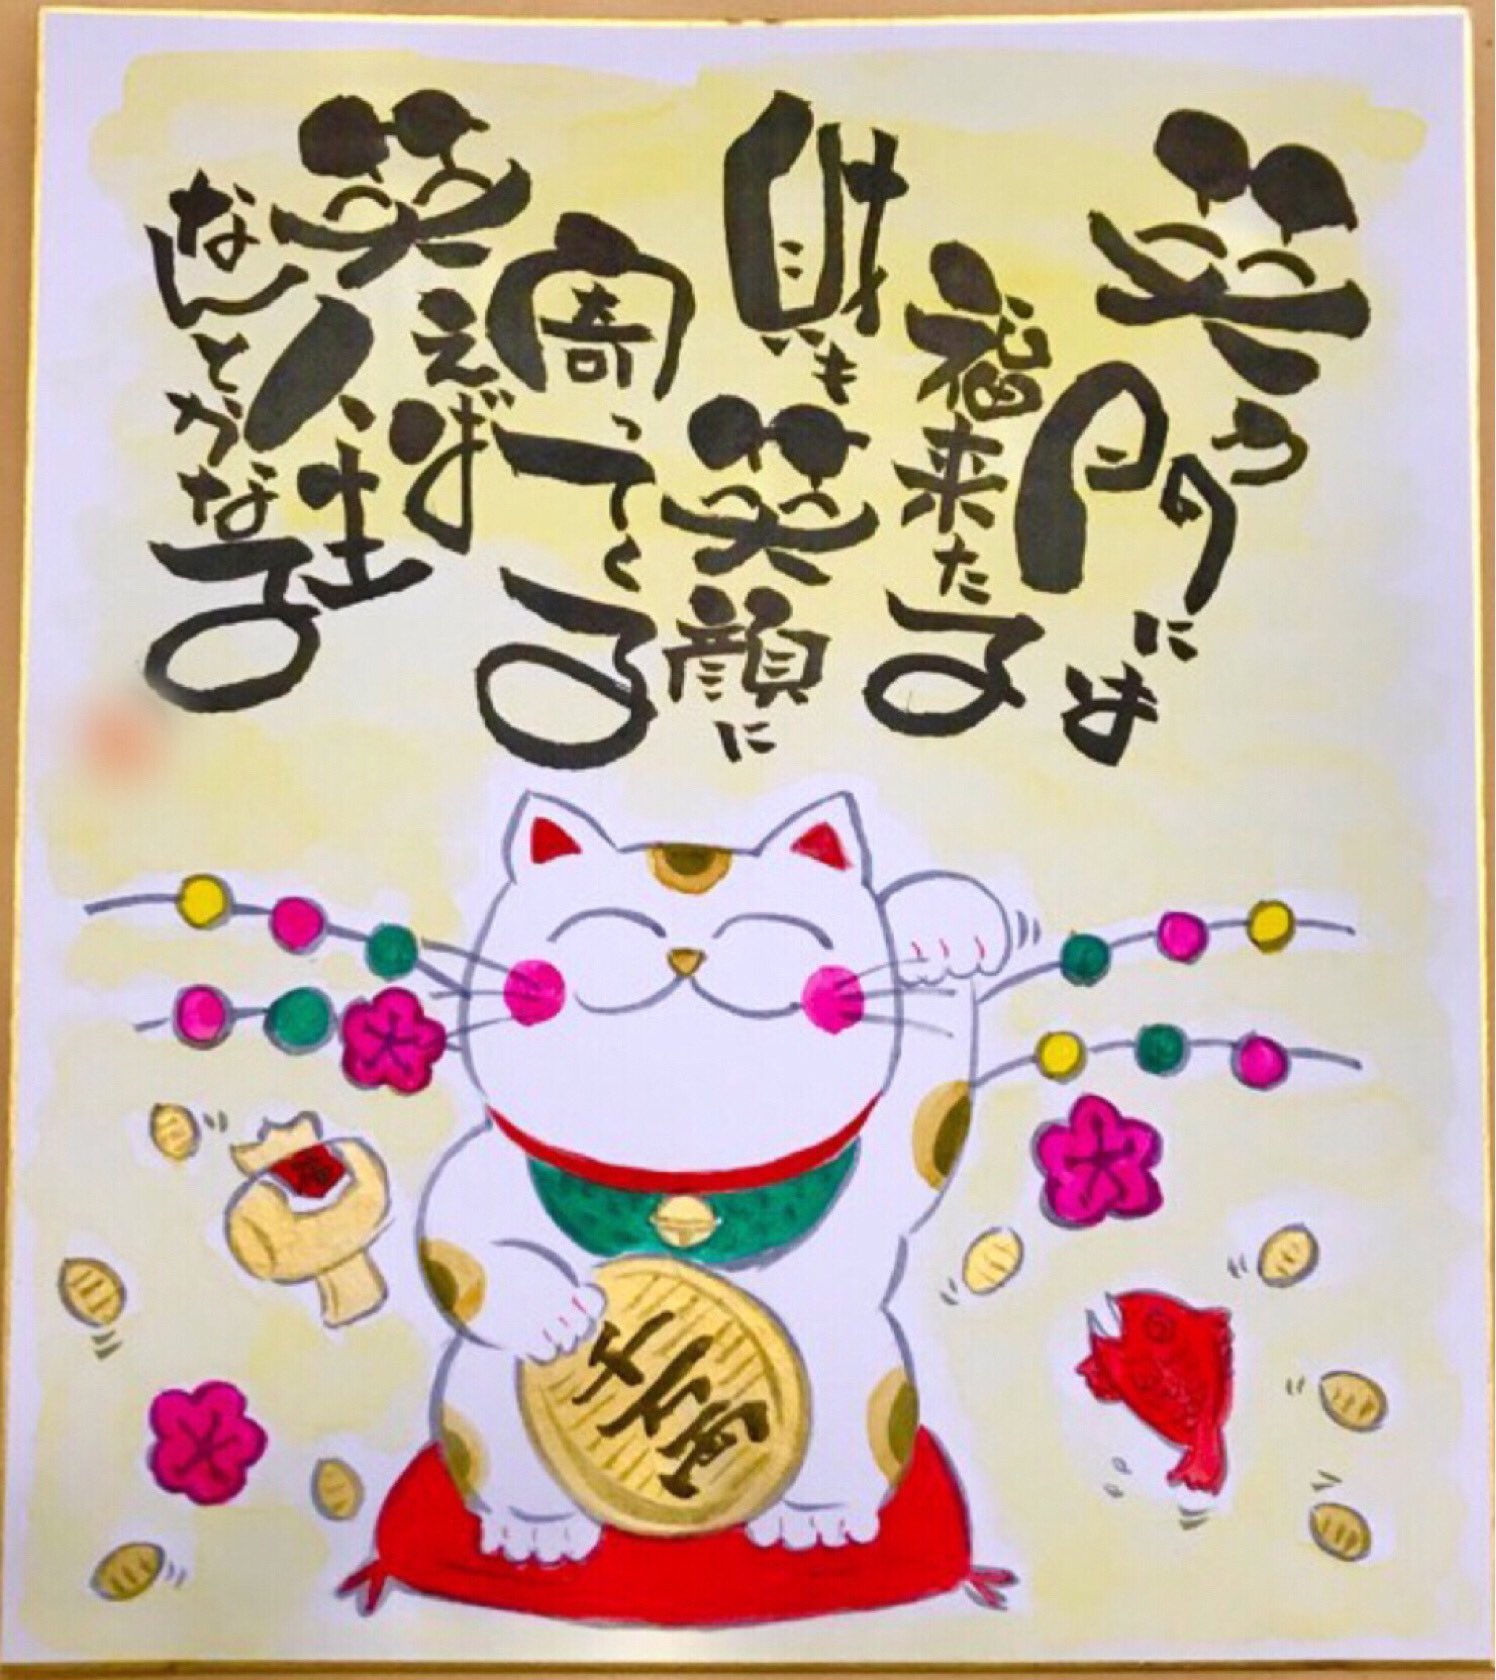 笑う
門には
福来たる
財も
笑顔に
寄ってくる
笑えば
人生
なんとかなる
千万両